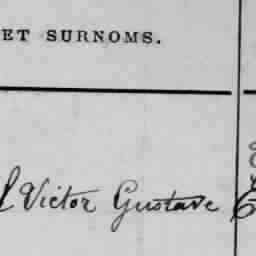 ET SURNOMS.
Victor Gustave